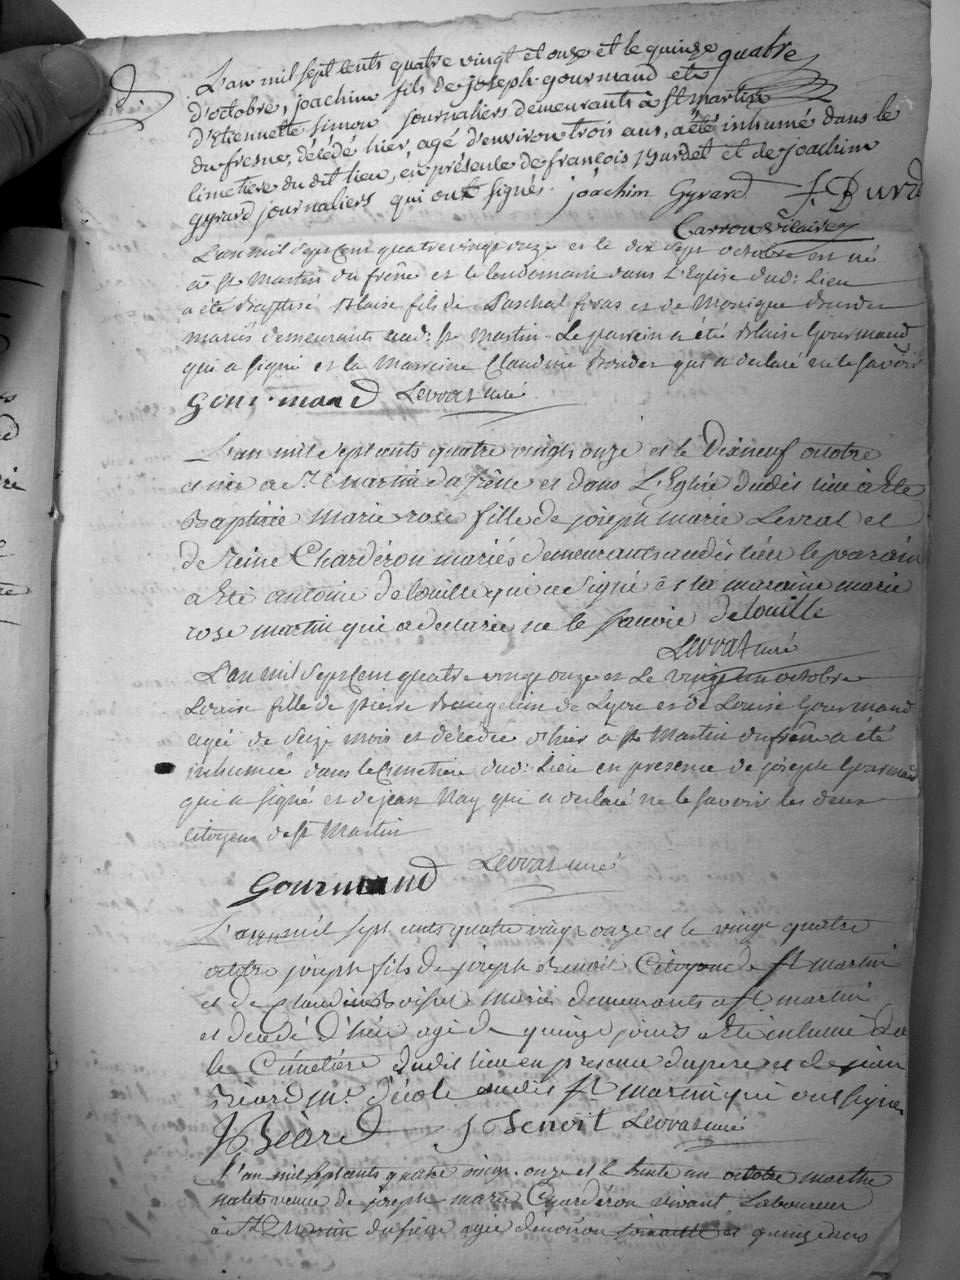 d.
L'an mil sept cents quatre vingt et onze et le quinze quatre
d'octobre, joachim fils de joseph gourmand et
d'Etiennette simon journaliers demeurants à st martin
du fresne, décédé hier, agé d'environ trois ans, a été inhumé dans le
cimetiere du dit lieu, en présence de françois Burdet et de joachim
Gyrard journaliers qui ont signés. joachim Gyrard f. Burd
Carron vicaire
L'an mil sept cent quatre vingt onze et le dix sept octobre est né
à St Martin du frêne et le lendemain dans L'Eglise dud: Lieu
a eté Baptisé Blaise fils de Paschal et de Monique
mariés demeurants aud: St Martin. Le parrein a été Blaise Gourmand
qui a signé et la Marreine Claudine qui a declaré ne le savoir
Gourmand Levrat curé
L'an mil sept cents quatre vingts onze et le Dixneuf octobre
est née a St martin du frêne et dans L'Eglise dudit lieu a Ete
Baptisée Marie rose fille de joseph marie Levrat et
de Reine Charderon mariés demeurants audit lieu le parain
a Eté antoine delouille qui a signé et la maraine marie
rose martin qui a declarée ne le savoir delouille
Levrat curé
L'an mil sept cent quatre vingt onze et Le vingt un octobre
Louise fille de pierre de Lyon et de Louise Gourmand
agée de Seize mois et décédée d'hier a St Martin du frêne a été
inhumée dans le Cimetiere dud: Lieu en presence de joseph Gourmand
qui a signé et de jean Nay qui a declaré ne le savoir les deux
citoyens de St Martin
Levrat curé
Gourmand
L'an mil sept cents quatre vingt onze et le vingt quatre
octobre joseph fils de joseph Benoit Citoyen de St martin
et de Claudine mariés demeurants a St martin
et decedé D'hier agé de quinze jours a Eté inhumé Da
le Cimetière dudit lieu en presence du pere et de jean
Béard me d'école audit St martin qui ont signés
JB Béard J Benoit Levrat curé
L'an mil sept cents quatre vingt onze et le trente un octobre marthe
veuve de joseph marie Charderon vivant Laboureur
à St Martin du frêne agée d'environ soixante et quinze ans